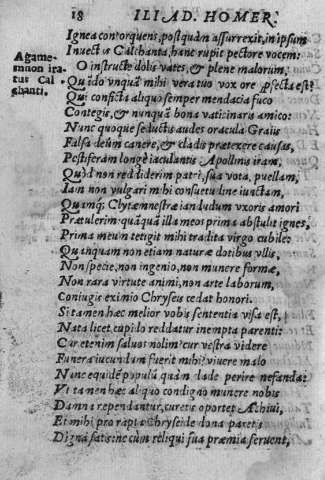 18 ILIAD. HOMER.
Ignea contorquens, postquàm assurrexit, in ipsum
Inuectus Calchanta, hanc rupit pectore vocem:
Agamemnon iratus Calchanti.
O instructe dolis vates, & plene malorum,
Quãdo vnquã mihi vera tuo vox ore pfecta est?
Qui conficta aliquo semper mendacia fuco
Contegis, & nunquã bona vaticinaris amico:
Nunc quoque seductis audes oracula Graiis
Falsa deûm canere, & cladis prætexere causas,
Pestiferam longè iaculantis Apollinis iram,
Quòd non reddiderim patri, sua vota, puellam,
Iam non vulgari mihi consuetudine iunctam,
Quamq; Clytæmnestræ iandudum vxoris amori
Prætulerim: quãquã illa meos prima abstulit ignes,
Prima meum tetigit mihi tradita virgo cubile:
Quanquam non etiam naturæ dotibus vllis,
Non specie, non ingenio, non munere formæ,
Non rara virtute animi, non arte laborum,
Coniugis eximio Chryseis cedat honori.
Si tamen hæc melior vobis sententia visa est,
Nata licet cupido reddatur inempta parenti:
Cur etenim saluos nolim? cur vestra videre
Funera iucundum fuerit mihi? viuere malo
Nunc equidẽ populũ quàm clade perire nefanda:
Vt tamen hæc aliquo condigno munere nobis
Damna rependantur, curetis oportet Achiui,
Et mihi pro rapta Chryseide dona paretis
Digna satis: ne cùm reliqui sua præmia seruent,